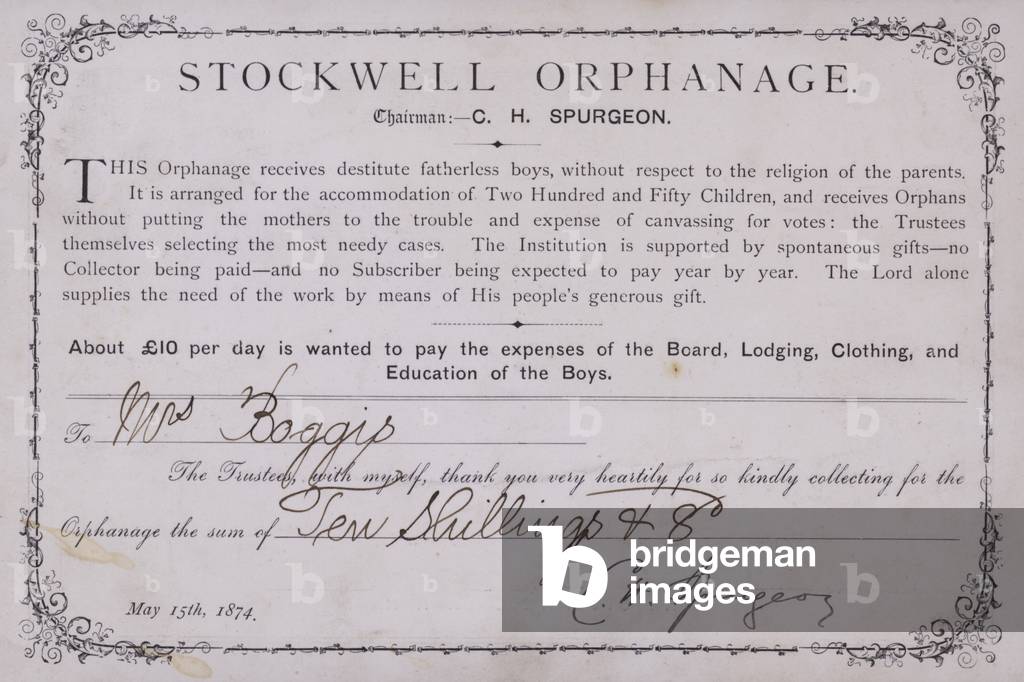 STOCKWELL ORPHANAGE.
Chairman:—C. H. SPURGEON.
THIS Orphanage receives destitute fatherless boys, without respect to the religion of the parents.
It is arranged for the accommodation of Two Hundred and Fifty Children, and receives Orphans
without putting the mothers to the trouble and expense of canvassing for votes: the Trustees
themselves selecting the most needy cases. The Institution is supported by spontaneous gifts—no
Collector being paid—and no Subscriber being expected to pay year by year. The Lord alone
supplies the need of the work by means of His people's generous gift.
About £10 per day is wanted to pay the expenses of the Board, Lodging, Clothing, and
Education of the Boys.
To Mrs Boggis
The Trustees, with myself, thank you very heartily for so kindly collecting for the
Orphanage the sum of Ten Shillings & 8D
C. H. Spurgeon
May 15th, 1874.
b bridgeman
images